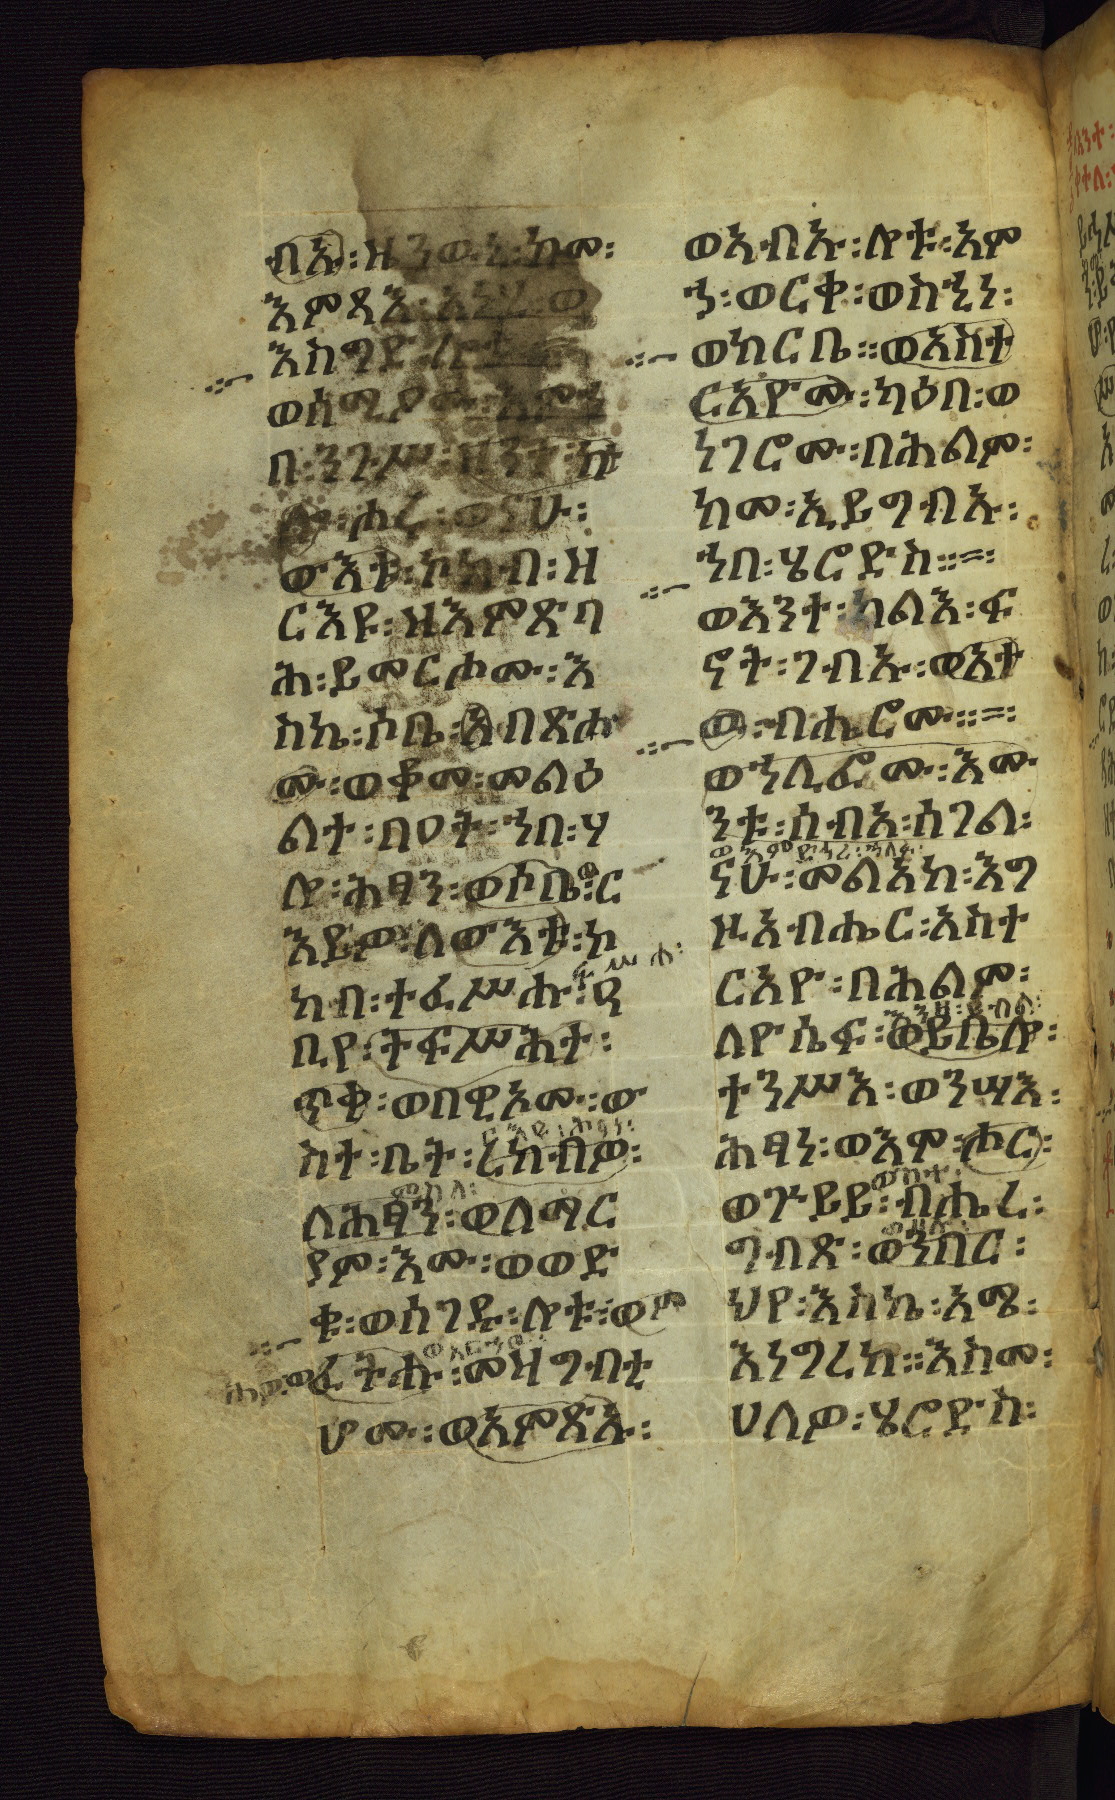 ብኡ፡ዜንውኒ፡ከመ፡
እምጻእ፡አነሂ፡ወ
እስግድ፡ሎቱ፡
ወሰሚዖሙ፡እምኀ
በ፡ንጉሥ፡ዘንተ፡ቃ
ሖሩ፡ወናሁ፡
ውእቱ፡ኮከብ፡ዘ
ርእዩ፡ዝእምጽባ
ሕ፡ይመርሖሙ፡እ
ስከ፡ሶቤ፡አብጽሖ
ሙ፡ወቆመ፡መልዕ
ልተ፡በዐት፡ኀበ፡ሃ
ሎ፡ሕፃን፡ወሶቤ፡ር
እይዎ፡ለውእቱ፡ኮ
ፍሥሐ፡
ከብ፡ተፈሥሑ፡ዓ
ቢየ፡ትፍሥሕተ፡
ጥቀ፡ወበዊኦሙ፡ው
ርእዩ፡ሕፃነ፡
ስተ፡ቤት፡ረከብዎ፡
ምስለ፡
ለሕፃን፡ወለማር
ያም፡እሙ፡ወወድ
ቁ፡ወሰገዱ፡ሎቱ፡ወም
ወአርኀዉ፡
ፈትሑ፡መዛግብቲ
ሆሙ፡ወእምጽኡ፡
ወአብኡ፡ሎቱ፡አም
ኃ፡ወርቀ፡ወስኂነ፡
ወከርቤ፡፡ወአስተ
ርአዮሙ፡ካዕበ፡ወ
ነገሮሙ፡በሕልም፡
ከመ፡ኢይግብኡ፡
ኀበ፡ሄሮድስ፡፡
ወእንተ፡ካልእ፡ፍ
ኖት፡ገብኡ፡ውእተ
ብሔሮሙ፡፡
ወኀሊፎሙ፡እሙ
ንቱ፡ሰብአ፡ሰገል፡
ወእምድኅረ፡ኀለፉ፡
ናሁ፡መልአከ፡እግ
ዚአብሔር፡አስተ
ርአዮ፡በሕልም፡
እንዘ፡ይብል፡
ለዮሴፍ፡ወይቤሎ፡
ተንሥእ፡ወንሣእ፡
ሕፃነ፡ወእሞ፡ሖር፡
ውስተ፡
ወጕይይ፡ብሔረ፡
ወሀሉ፡
ግብጽ፡ወንበር፡
ህየ፡እስከ፡አሜ፡
እነግረከ፡፡እስመ፡
ሀለዎ፡ሄሮድስ፡